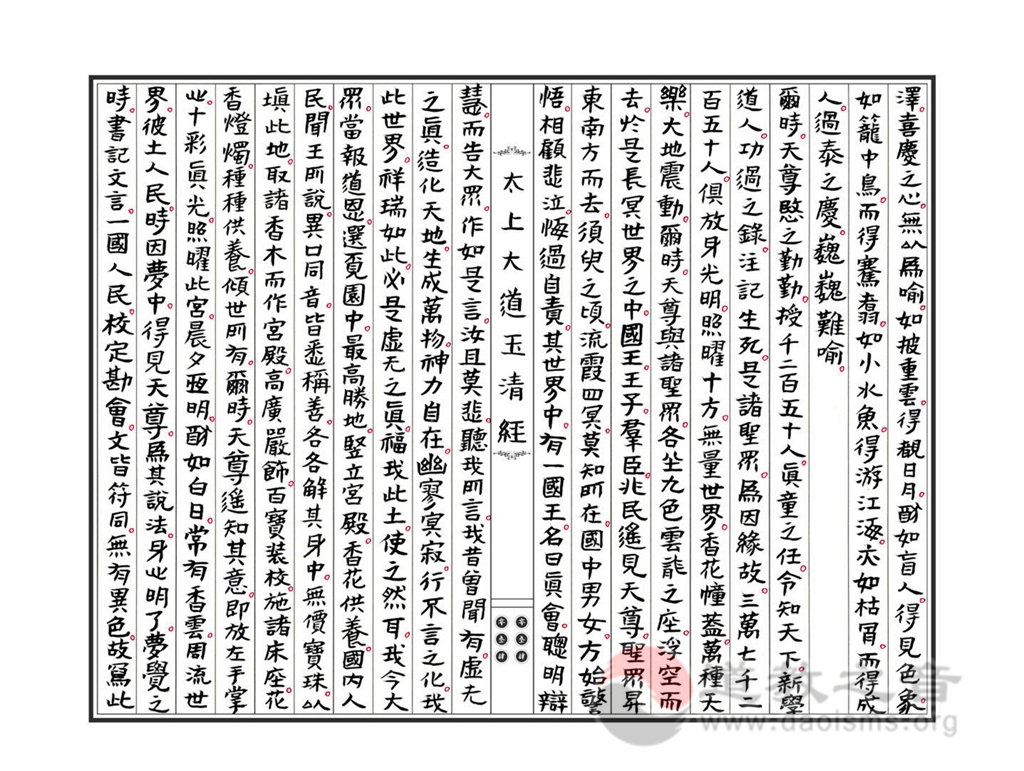 澤喜慶之心無以爲喻如披重雲得覩日月酧如盲人得見色象
如籠中鳥而得騫翥如小水魚得游江海亦如枯骨而得成
人過泰之慶巍巍難喻
爾時天尊愍之勤勤授千二百五十人眞童之任令知天下新學
道人功過之錄注記生死是諸聖眾爲因緣故三萬七千二
百五十人俱放身光明照曜十方無量世界香花幢蓋萬種大
樂大地震動爾時天尊與諸聖眾各坐九色雲龍之座浮空而
去於是長冥世界之中國王王子羣臣兆民遙見天尊聖眾昇
東南方而去須臾之頃流霞四冥莫知所在國中男女方始警
悟相顧悲泣悔過自責其世界中有一國王名曰眞會聰明辯
太上大道玉清經
慧而告大眾作如是言汝且莫悲聽我所言我昔曾聞有虛无
之眞造化天地生成萬物神力自在幽寥冥寂行不言之化我
此世界祥瑞如此必是虛无之眞福我此土使之然耳我今大
眾當報道恩選覓園中最高勝地竪立宮殿香花供養國內人
民聞王所說異口同音皆悉稱善各各解其身中無價寶珠以
塡此地取諸香木而作宮殿高廣嚴飾百寶裝校施諸床座花
香燈燭種種供養傾世所有爾時天尊遙知其意即放左手掌
心十彩眞光照曜此宮晨夕𠄘明酧如白日常有香雲周流世
界彼土人民時因夢中得見天尊爲其說法身心明了夢覺之
時書記文言一國人民校定勘會文皆符同無有異色故寫此
道教之音
www.daoisms.org